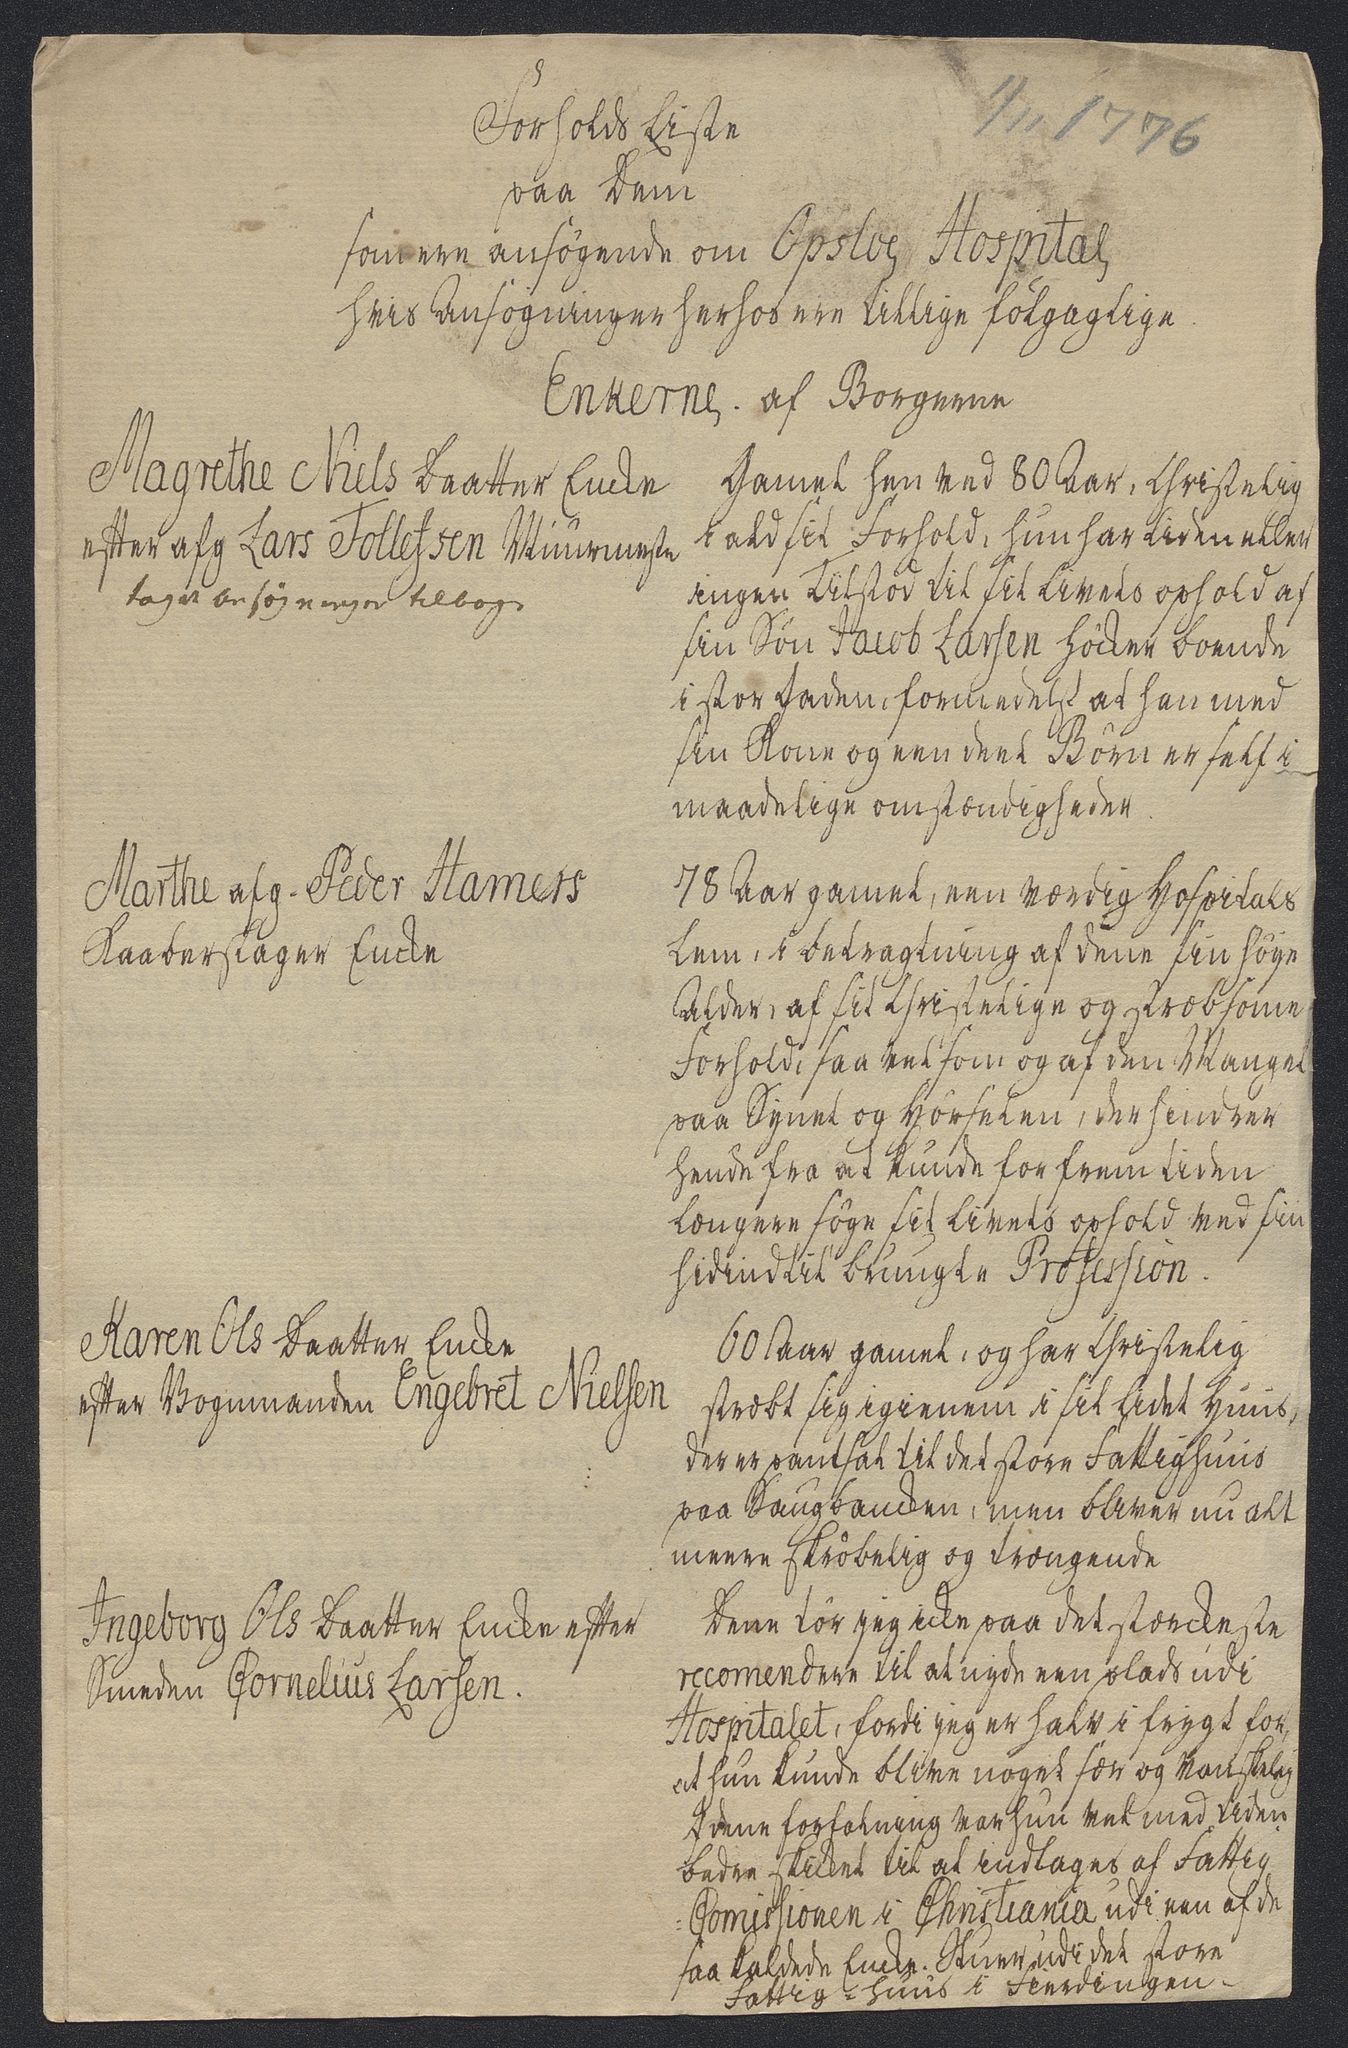 1/11 1776
Forholds Liste
paa Dem
som ere ansøgende om Opsloe Hospital,
hvis Ansøgninger herhos ere tillige følgagtige.
Enkerne. af Borgerne
Magrethe Niels Daatter Encke
efter afg Lars Tollefsen Muurmester
taget ansøgningen tilbage
Gamel hen ved 80 Aar, Christelig
i ald sit Forhold, hun har liden eller
ingen Tilskod til sit Livets ophold af
sin Søn Jacob Larsen Höcker boende
i stor Gaden, formedelst at han med
sin Kone og een deel Børn er self i
maadelige omstændigheder.
Marthe afg. Peder Hamers
Kaaberslager Encke
78 Aar gamel, een værdig Hospitals
Lem, i betragtning af dene sin høye
Alder, af sit Christelige og stræbsome
Forhold, saa vel som og af den Mangel
paa Synet og Hørselen, der hindrer
hende fra at kunde for fremtiden
længere søge sit Livets ophold ved sin
hidindtil brugte Profession.
Karen Ols Daatter Encke
efter Vognmanden Engebret Nielsen
60 Aar gamel, og har Christelig
stræbt sig igienem i sit lidet Huus,
der er pantsat til det store Fattighuus
paa Saugbancken, men bliver nu alt
meere skrøbelig og trængende
Ingeborg Ols Daatter Encke efter
Smeden Cornelius Larsen.
Dene tør jeg icke paa det stærckeste
recomendere til at nyde een plads udi
Hospitalet, fordi jeg er halv i frygt for,
at hun kunde blive noget sær og vanskelig
I dene forfatning var hun vel med tiden
bedre skicket til at indtages af Fattig
-Comissionen i Christiania udi een af de
saa kaldede Encke-Stuer udi det store
Fattig-huus i Fierdingen.